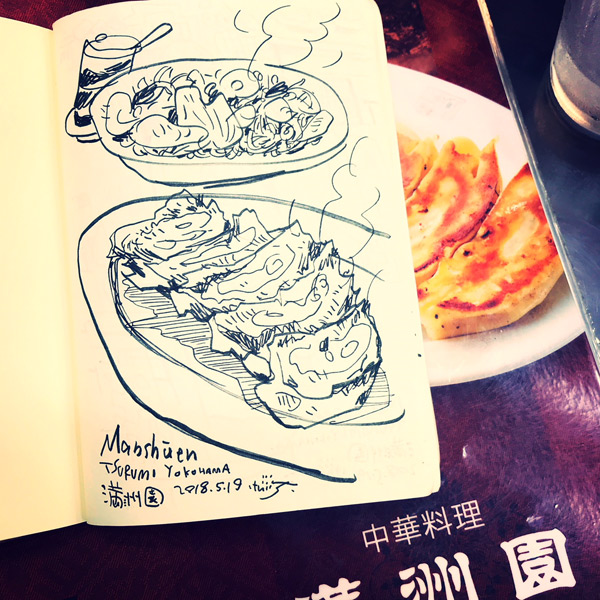 Manshūen
TSURUMI YOKOHAMA
満州園 2018.5.19
中華料理
満州園